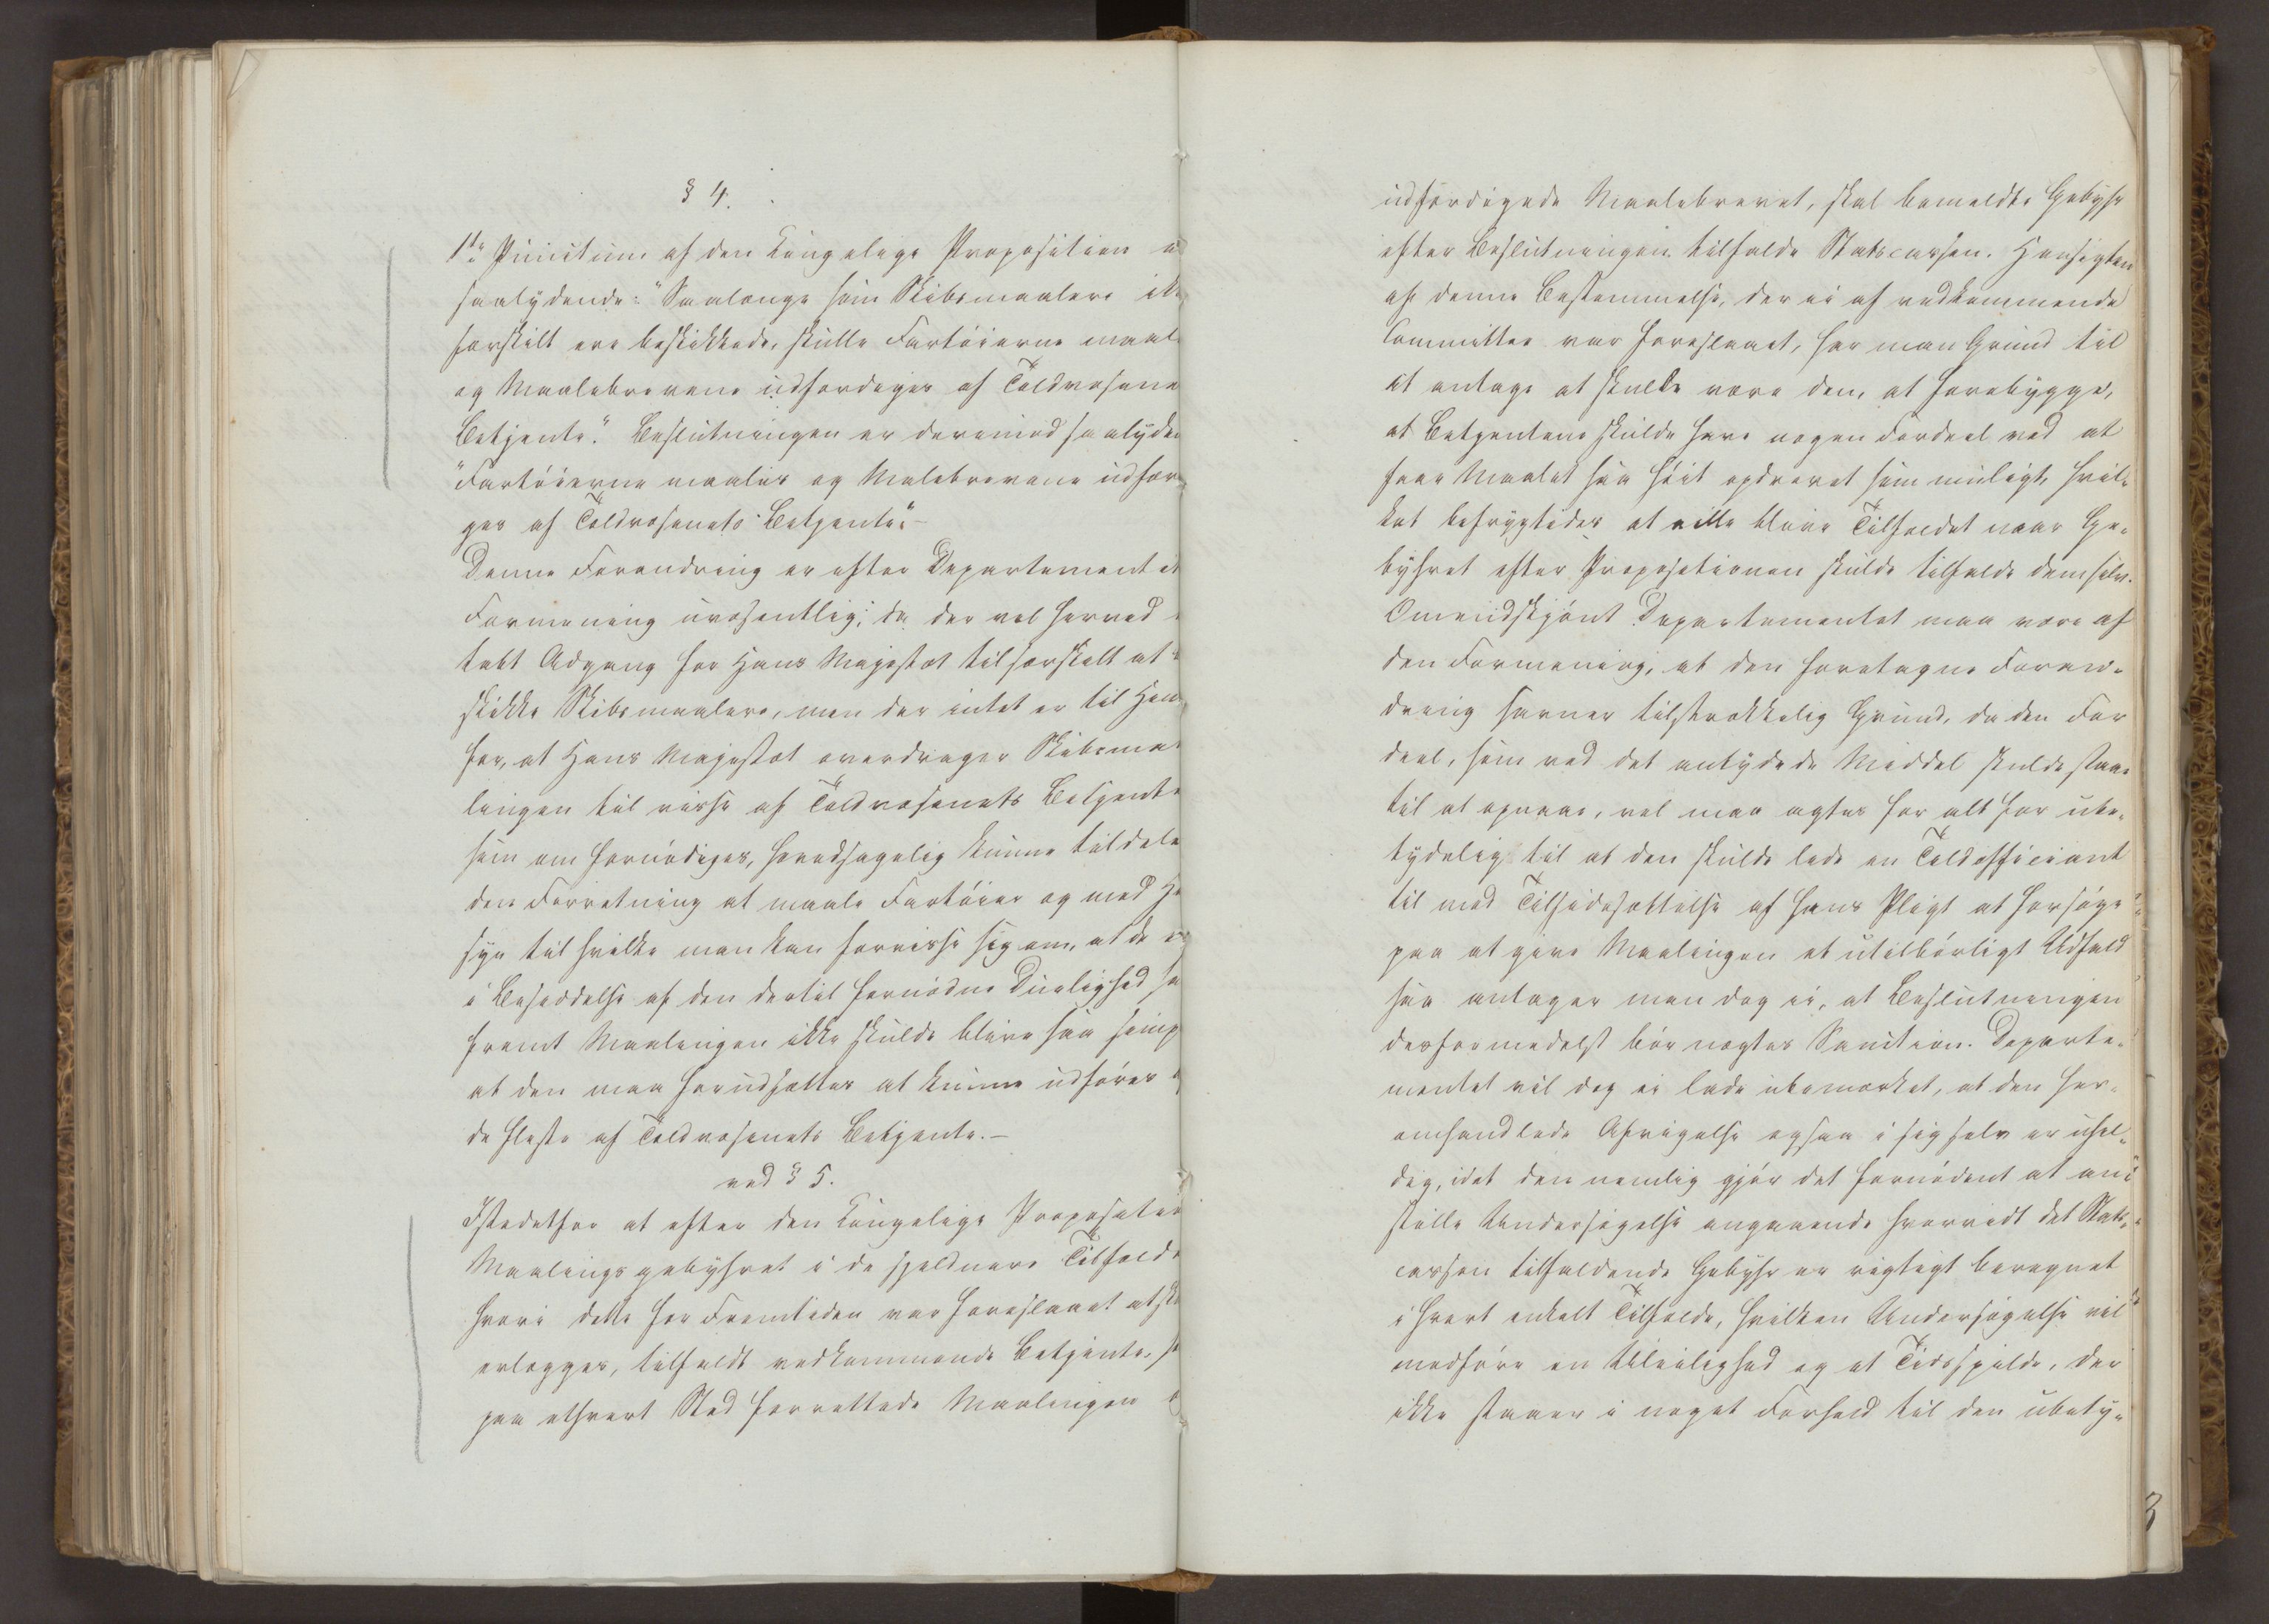 § 4.
1ste Punctum af den Kongelige Proposition
saalydende: "Saalænge som Skibsmaalere ikke
særskilt ere beskikkede, skulle Fartøierne maale
og Maalebrevene udfærdiges af Toldvæsene
Betjente." Beslutningen er derimod saalyden
"Fartøierne maales og Malebrevene udfær
ges af Toldvæsenets Betjente" -
Denne Forandring er efter Departementet
Formening uvæsentlig; da der vel herved
tabt Adgang for Hans Majestæt til særskilt at
skikke Skibsmaalere, men der intet er til Hin
for, at Hans Majestæt overdrager Skibsmaa
lingen til visse af Toldvæsenets Betjente
som om fornødiges, hovedsagelig kunne tildele
den Forretning at maale Fartøier og med He
syn til hvilke man kan forvisse sig om, at de er
i Besiddelse af den dertil fornødne Duelighed, sa
fremt Maalingen ikke skulde blive saa simp
at den maa forudsættes at kunne udføres
de fleste af Toldvæsenets Betjente. -
ved § 5.
Istedetfor at efter den Kongelige Propositio
Maalingsgebyhret i de sjeldnere Tilfælde
hvori dette for Fremtiden var foreslaaet at sk
erlægges, tilfaldt vedkommende Betjente,
paa ethvert Sted forrettede Maalingen
udfærdigede Maalebrevet, skal bemeldte Gebyhr
efter Beslutningen tilfalde Statscassen. Hensigten
af denne Bestemmelse, der ei af vedkommende
Committee var foreslaaet, har man Grund til
at antage at skulle være den, at forebygge,
at Betjentene skulde have nogen Fordeel ved at
faae Maalet saa høit opdrevet som muligt, hvil-
ket befrygtedes at ville blive Tilfældet naar Ge-
byhret efter Propositionen skulde tilfalde dem selv.
Omendskjønt Departementet maa være af
den Formening, at den foretagne Foran-
dring savner tilstrækkelig Grund, da den For
deel, som ved det antydede Middel skulde staae
til at opnaae, vel maa agtes for alt for ube-
tydelig til at den skulde lede en Toldofficiant
til med Tilsidesættelse af hans Pligt at forsøge
paa at give Maalingen et utilbørligt Udfald
saa antager man dog ei, at Beslutningen
desformedelst bør nægtes Sanction. Departe-
mentet vil dog ei lade ubemærket, at den her-
omhandlede Afvigelse ogsaa i sig selv er uhel-
dig, idet den nemlig gjør det fornødent at an-
stille Undersøgelse angaaende hvorvidt det Stats-
cassen tilfaldende Gebyhr er rigtigt beregnet
i hvert enkelt Tilfælde, hvilken Undersøgelse vil
medføre en Uleilighed og et Tidsspilde, der
ikke staaer i noget Forhold til den ubety-